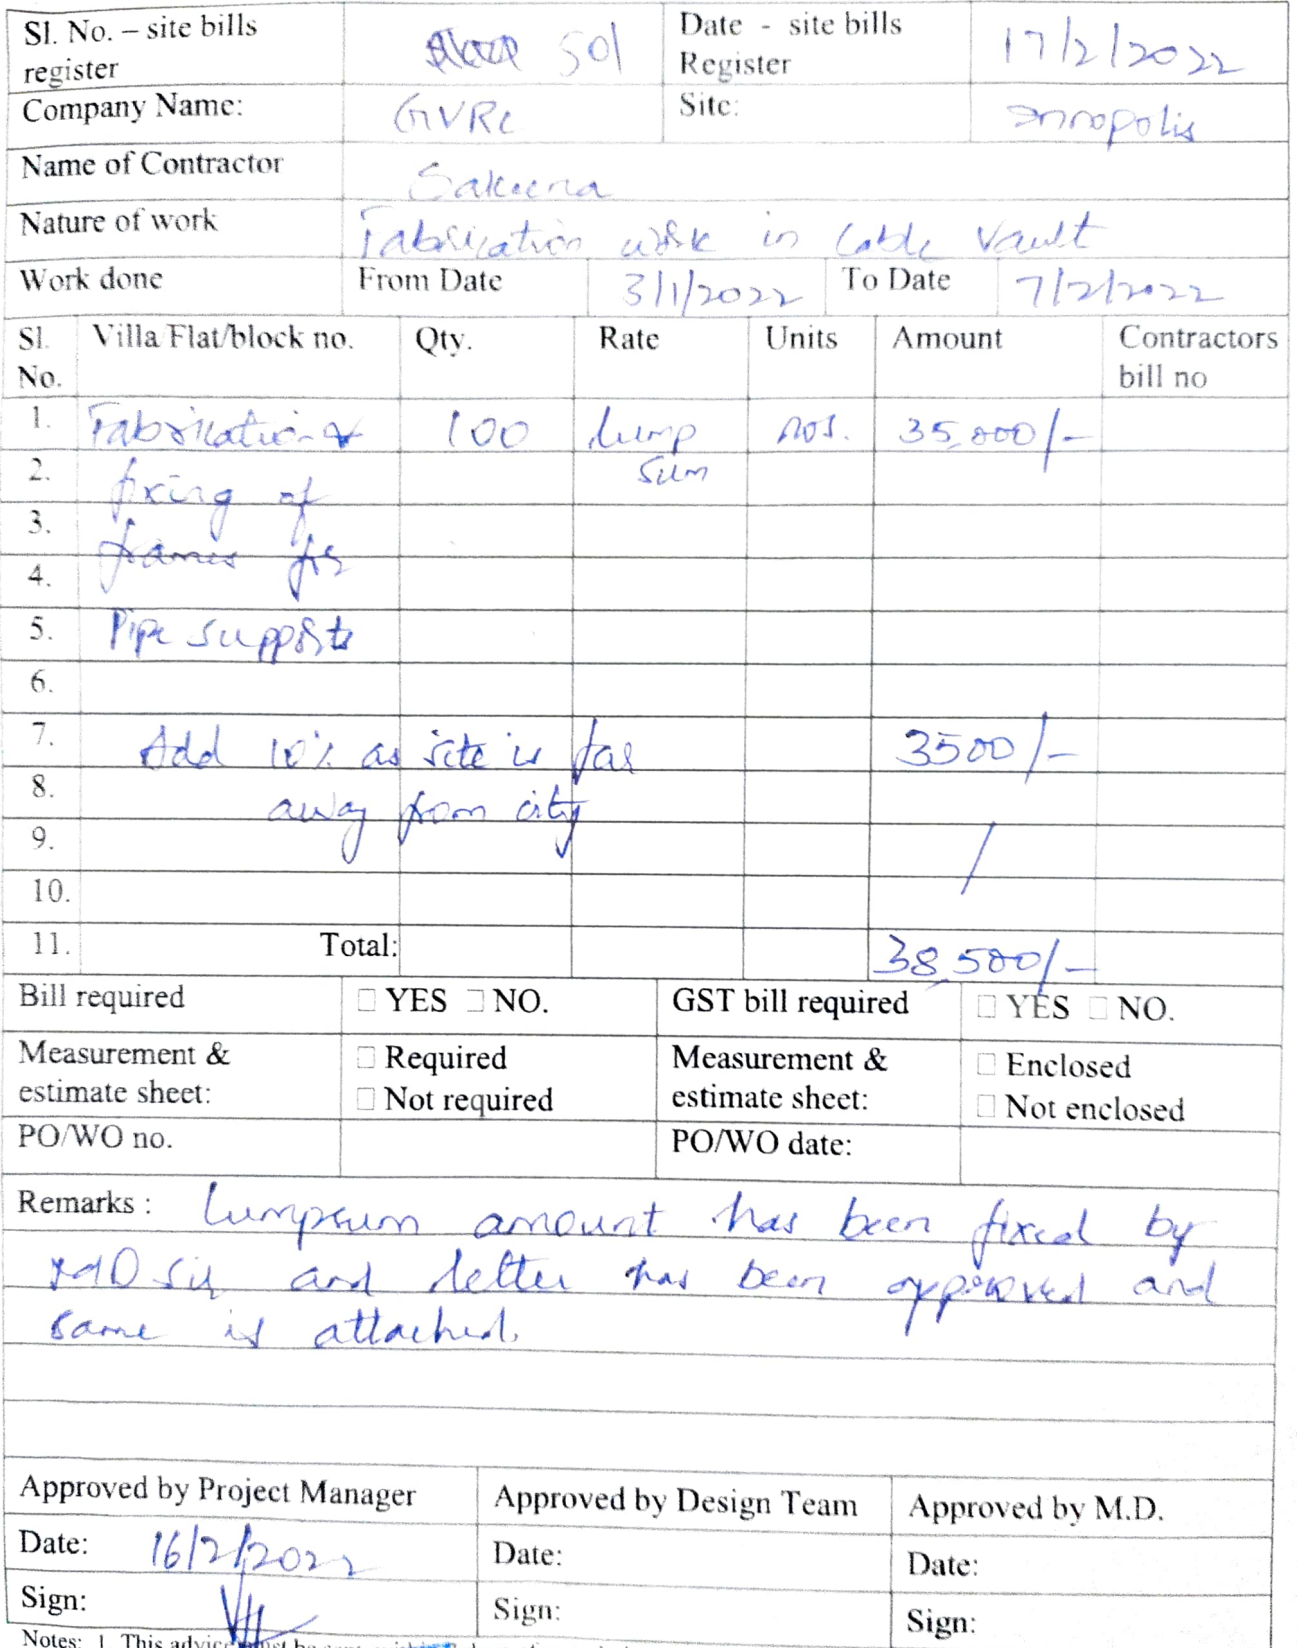 Sl. No. – site bills register 501 Date - site bills Register 17/2/2022
Company Name: GVRC Site: Innopolis
Name of Contractor Sakeena
Nature of work Fabrication work in Cable Vault
Work done From Date 3/1/2022 To Date 7/2/2022
Sl. No. Villa Flat/block no. Qty. Rate Units Amount Contractors bill no
1. Fabrication & 100 lump nos. 35,000/-
2. fixing of sum
3. frames for
4.
5. Pipe supports
6.
7. Add 10% as site is far 3500/-
8. away from city
9.
10.
11. Total: 38,500/-
Bill required YES NO. GST bill required YES NO.
Measurement & estimate sheet: Required Not required Measurement & estimate sheet: Enclosed Not enclosed
PO/WO no. PO/WO date:
Remarks : Lumpsum amount has been fixed by
MD sir and letter has been approved and
same is attached.
Approved by Project Manager Approved by Design Team Approved by M.D.
Date: 16/2/2022 Date: Date:
Sign: Sign: Sign:
Notes: 1. This advice must be